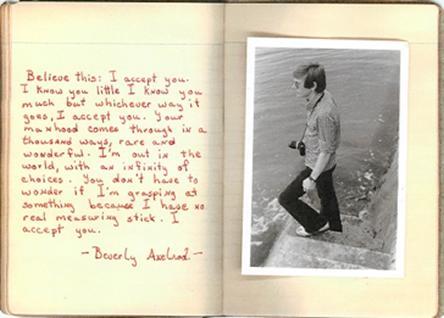 Believe this: I accept you.
I know you little I know you
much but whichever way it
goes, I accept you. Your
manhood comes through in a
thousand ways, rare and
wonderful. I'm out in the
world, with an infinity of
choices. You don't have to
wonder if I'm grasping at
something because I have no
real measuring stick. I
accept you.
- Beverly Axelrod -